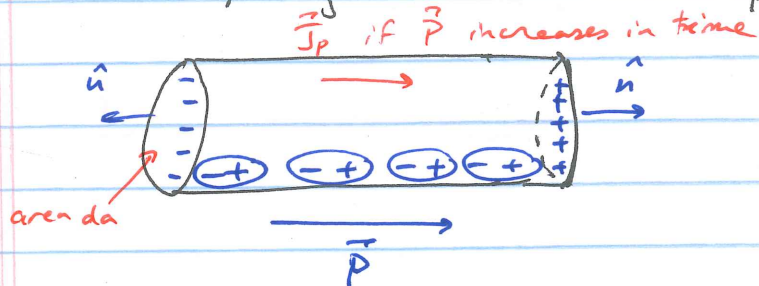 J⃗p if P⃗ increases in time
n̂
n̂
- + - + - + - +
area da
P⃗